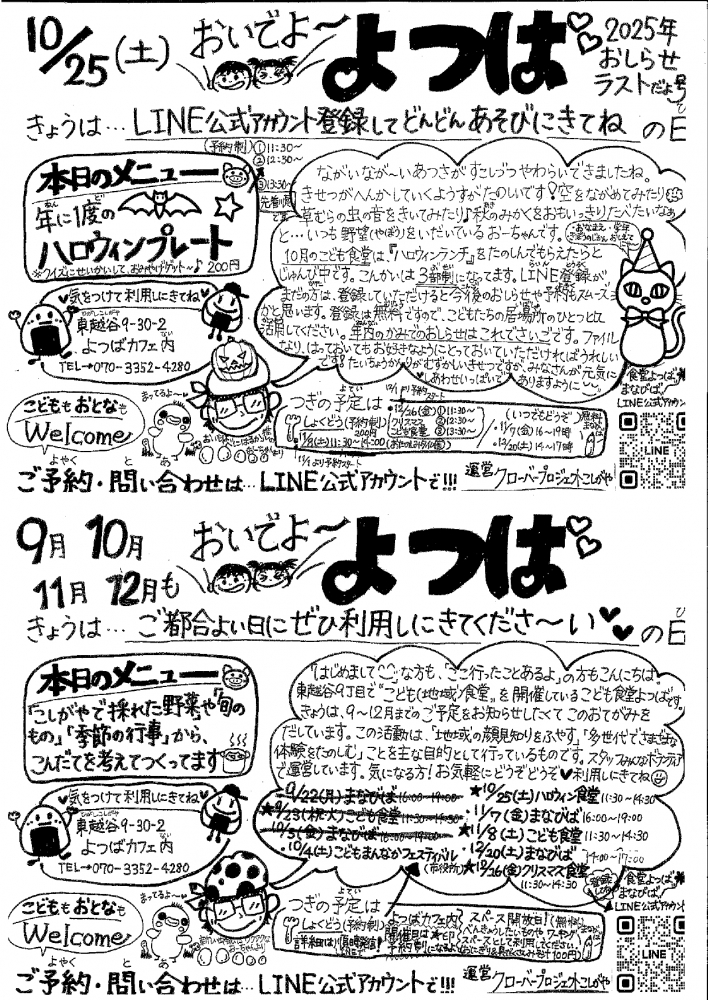 10/25(土)
おいでよ〜
よつば
2025年
おしらせ
ラストだよ号
きょうは…LINE公式アカウント登録してどんどんあそびにきてねの日
(予約制)①11:30〜
②12:30〜
③13:30〜
先着順
本日のメニュー
年に1度の
ハロウィンプレート
※クイズにせいかいして、おみやげゲット〜♪ 200円
ながいなが〜いあつさがすこしづつやわらいできましたね。
きせつがへんかしていくようすがたのしいです!空をながめてみたり
草むらの虫の音をきいてみたり♪秋のみかくをおもいっきりたべたいなぁ
と…いつも野望(やぼう)をいだいているおーちゃんです。
10月のこども食堂は、『ハロウィンランチ』をたのしんでもらえたらと
じゅんび中です。こんかいは3部制になってます。LINE登録が
まだの方は、登録していただけると今後のおしらせや予約もスムーズ
かと思います。登録は無料ですので、こどもたちの居場所のひとつとして
活用してください。年内のかみでのおしらせはこれでさいごです。ファイル
なり、はっておいてもお好きなようにとっておいていただければうれしい
です。たいちょうかんりがむずかしいきせつですが、みなさんが元気に
しあわせいっぱいでありますように〜
♥気をつけて利用しにきてね♥
東越谷9-30-2
よつばカフェ内
TEL→070-3352-4280
こどももおとなも
Welcome
まってるよ〜
つぎの予定は
しょくどう(予約制)
300円
11/8(土)11:30〜14:00
11/1より予約スタート
12/26(金)
クリスマス
こども食堂
①11:30〜
②12:30〜
③13:30〜
(いつでもどうぞ)
11/7(金)16〜19時
12/20(土)14〜17時
食堂よつば
まなびば
LINE公式アカウント
LINE
ご予約・問い合わせは…LINE公式アカウントで!!!
運営 クローバープロジェクトこしがや
9月 10月
11月 12月も
おいでよ〜
よつば
きょうは…ご都合よい日にぜひ利用しにきてくださ〜い♥♥の日
本日のメニュー
「こしがやで採れた野菜」や「旬の
もの」「季節の行事」から、
こんだてを考えてつくってます
「はじめまして」な方も、「ここ行ったことあるよ」の方もこんにちは。
東越谷9丁目で“こども(地域)食堂”を開催しているこども食堂よつばです。
きょうは、9〜12月までのご予定をお知らせしたくてこのおてがみを
だしています。この活動は、「地域の顔見知りをふやす」「多世代でさまざまな
体験をたのしむ」ことを主な目的として行っているものです。スタッフみんなボランティア
で運営しています。気になる方!お気軽にどうぞどうぞ♥利用しにきてね
9/22(月)まなびば16:00〜19:00
★9/23(秋火)こども食堂11:30〜14:30
10/3(金)まなびば16:00〜19:00
10/4(土)こどもまんなかフェスティバル
(市役所)
★10/25(土)ハロウィン食堂11:30〜14:30
11/7(金)まなびば16:00〜19:00
★11/8(土)こども食堂11:30〜14:30
12/20(土)まなびば14:00〜17:00
★12/26(金)クリスマス食堂
11:30〜14:30
♥気をつけて利用しにきてね♥
東越谷9-30-2
よつばカフェ内
TEL→070-3352-4280
こどももおとなも
Welcome
まってるよ〜
つぎの予定は
しょくどう
よつばカフェ内
開催日は
予約制
スペース開放日!(無料)
べんきょうしたいものやワーキング
スペースとして利用してください
食堂よつば
まなびば
LINE公式アカウント
LINE
ご予約・問い合わせは…LINE公式アカウントで!!!
運営 クローバープロジェクトこしがや